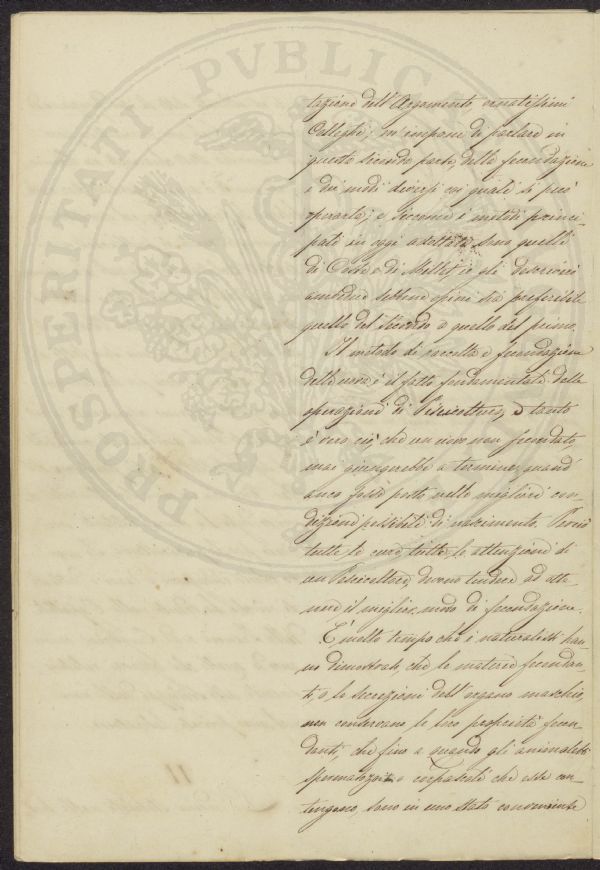 PROSPERITATI PVBLICAE
tazione dell'Argomento ornatissimi
Colleghi, m'impone di parlare in
questa seconda parte, della fecondazione
e dei modi diversi coi quali si può
operarla; e siccome i metodi princi-
pali in oggi adottati sono quelli
di Coste e di Millet io gli descriverò
amendue sebbene opini sia preferibile
quello del secondo a quello del primo.
Il metodo di raccolta e fecondazione
delle uova è il fatto fondamentale delle
operazioni di Piscicoltura, e tanto
è vero ciò, che un uovo non fecondato
mai giungerebbe a termine quand'
anco fosse posto nelle migliori con-
dizioni possibili di nascimento. Perciò
tutte le cure, tutte le attenzioni di
un Piscicoltore, devono tendere ad otte-
nere il miglior modo di fecondazione.
È molto tempo che i naturalisti han-
no dimostrato, che le materie fecondan-
ti, o le secrezioni dell'organo maschio,
non conservano le loro proprietà fecon-
danti, che fino a quando gli animaletti
spermatozoi o corpuscoli che esse con-
tengono, sono in uno stato conveniente